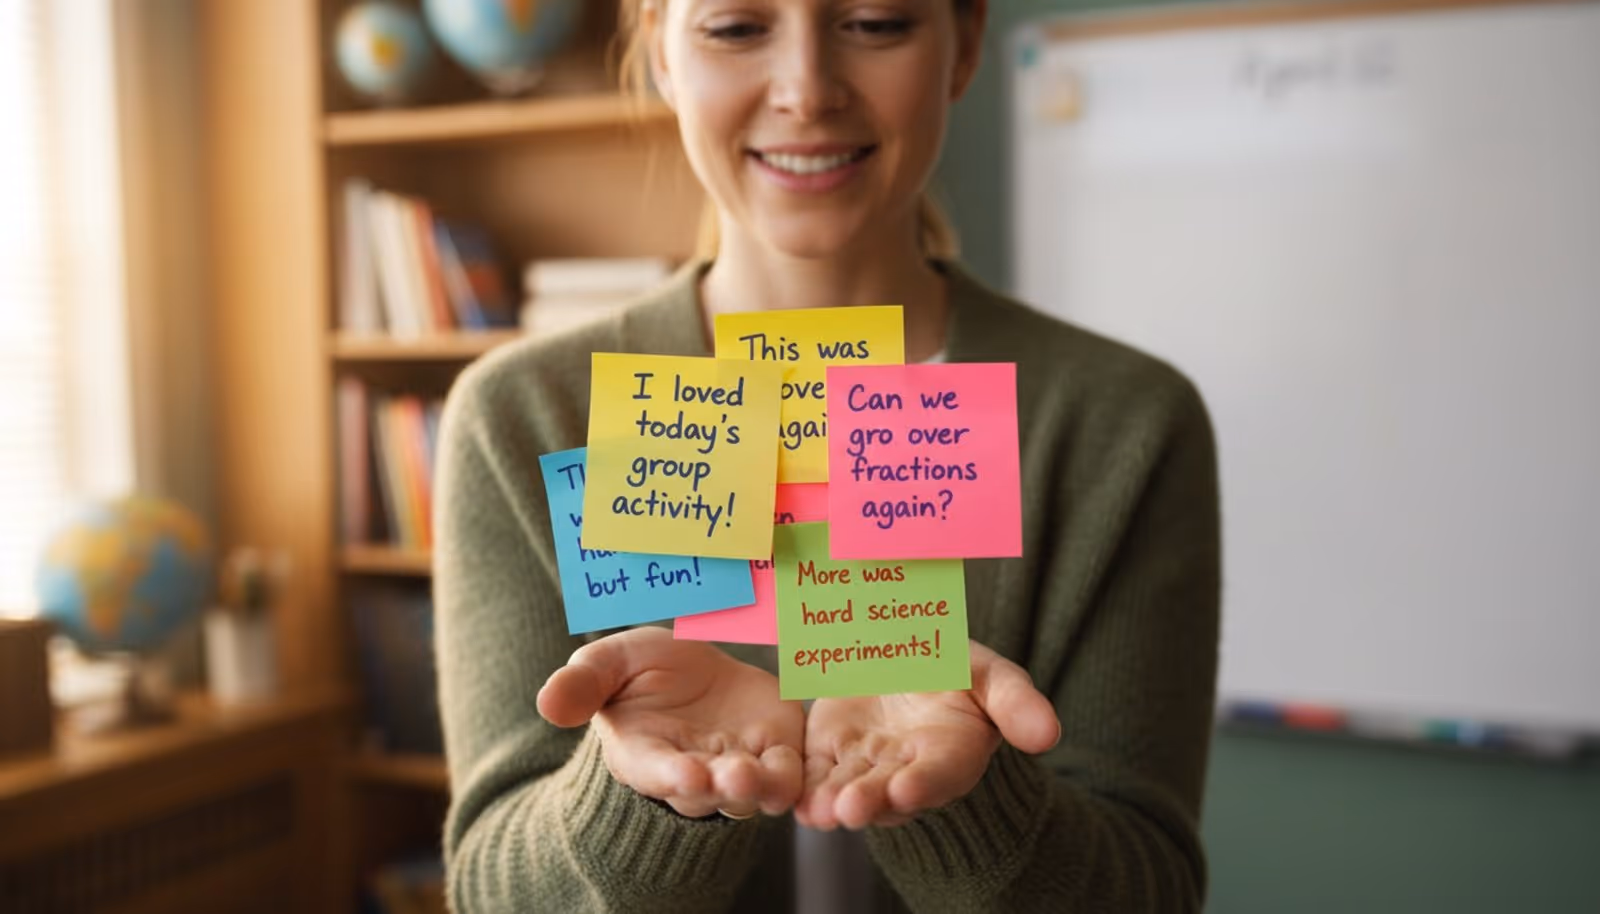 This was
I loved
today's
group
activity!
Can we
gro over
fractions
again?
but fun!
More was
hard science
experiments!